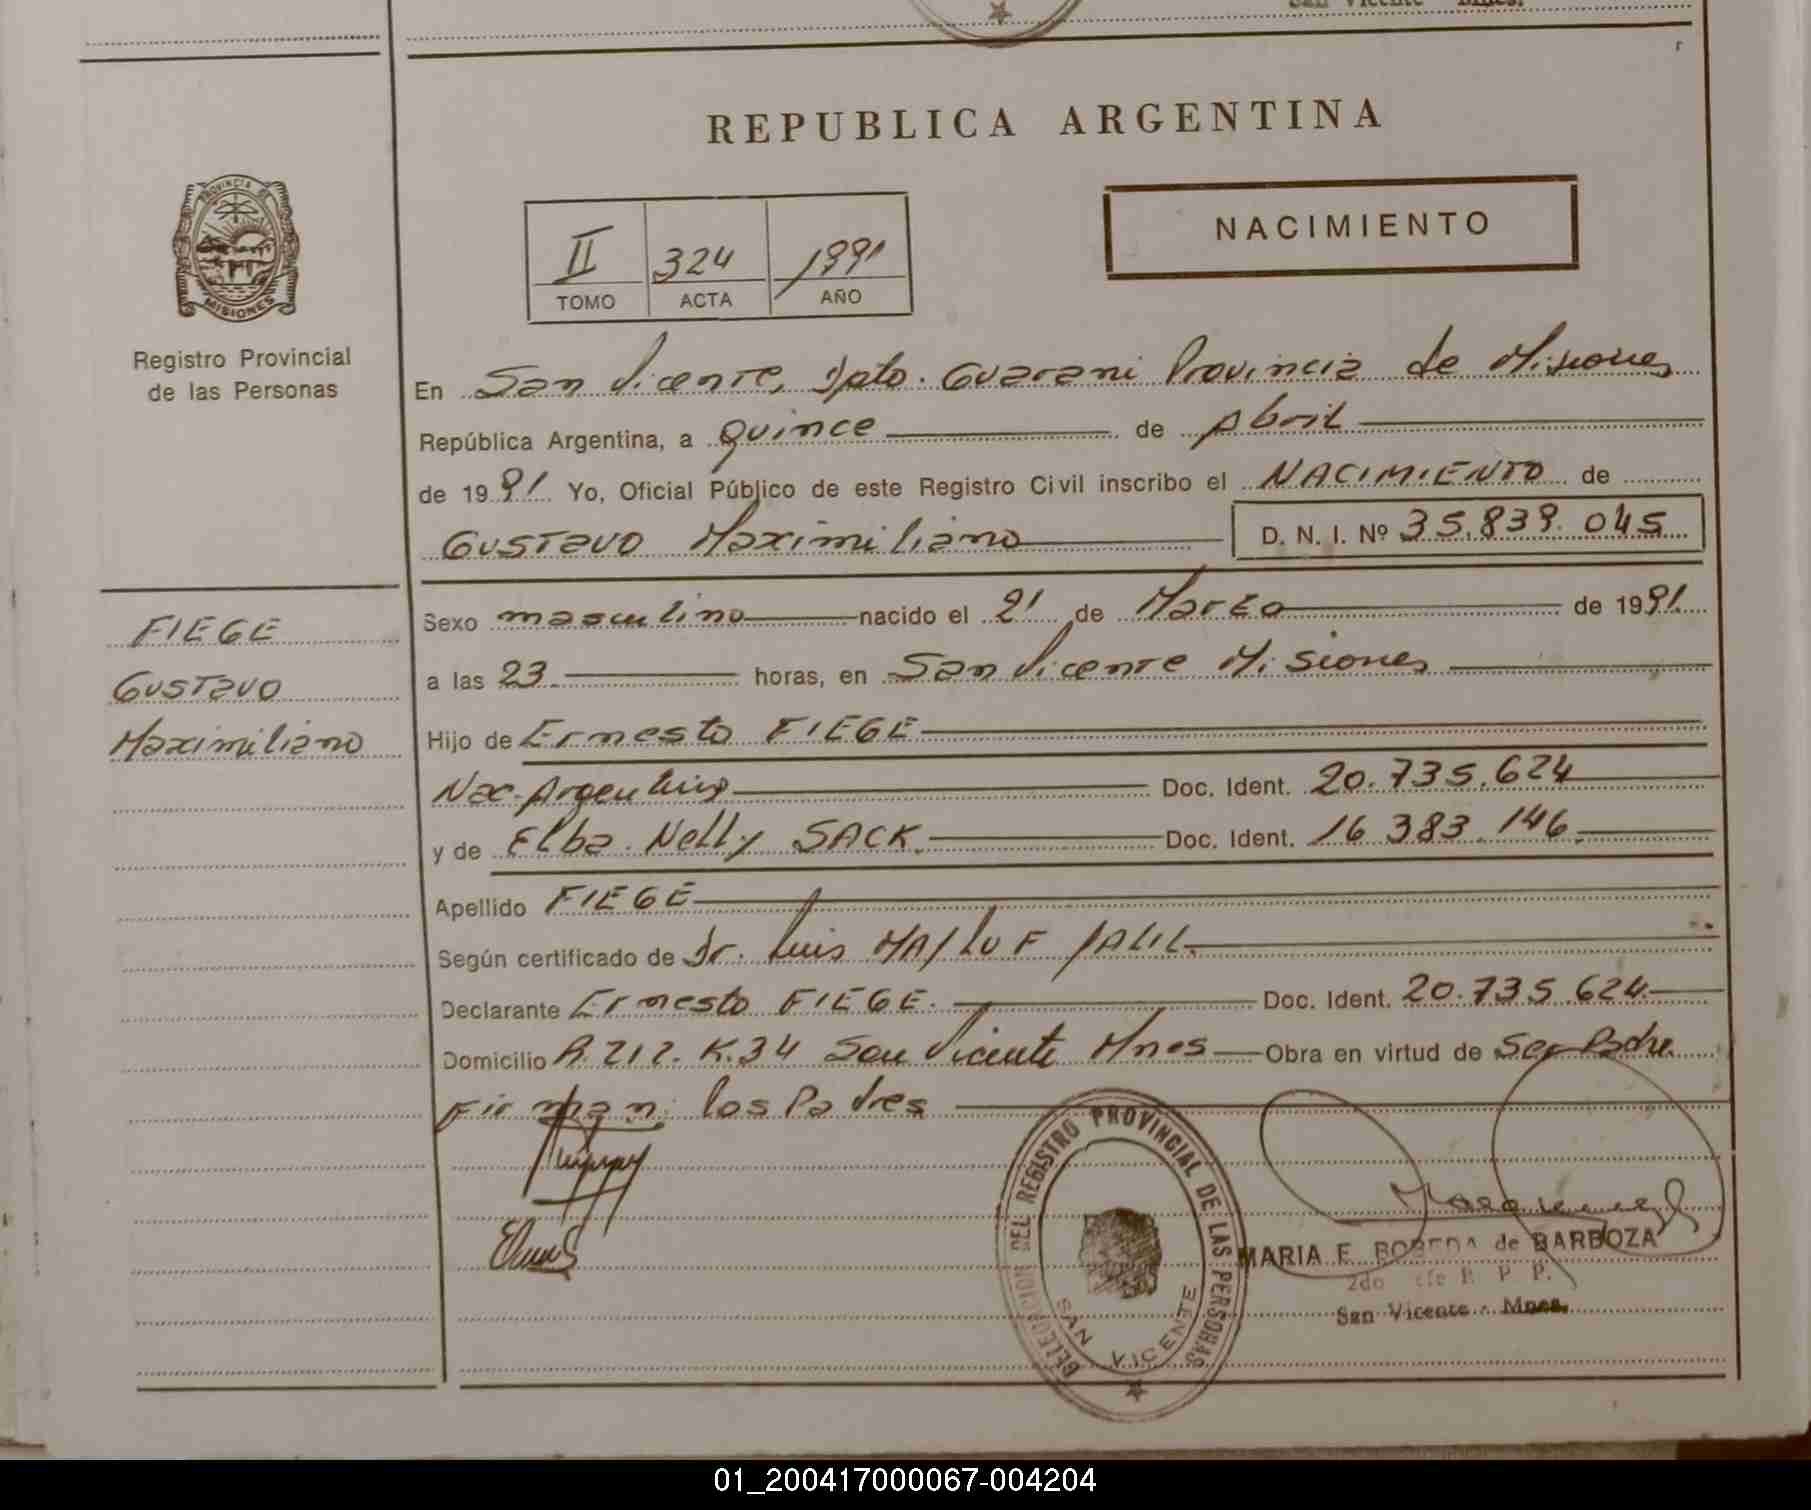 San Vicente Mnes.
REPUBLICA ARGENTINA
NACIMIENTO
II 324 1991
TOMO ACTA AÑO
PROVINCIA DE
MISIONES
Registro Provincial
de las Personas
En San Vicente, Dpto. Guarani Provincia de Misiones
República Argentina, a quince de Abril
de 1991 Yo, Oficial Público de este Registro Civil inscribo el NACIMIENTO de
GUSTAVO Maximiliano D. N. I. Nº 35.839.045
FIEGE
GUSTAVO
Maximiliano
Sexo masculino nacido el 21 de Marzo de 1991
a las 23 horas, en San Vicente Misiones
Hijo de Ernesto FIEGE
Nac. Argentino Doc. Ident. 20.735.624
y de Elba Nelly SACK. Doc. Ident. 16 383.146
Apellido FIEGE
Según certificado de Dr. Luis MALLUF JALIL.
Declarante Ernesto FIEGE. Doc. Ident. 20.735.624.
Domicilio P. 212. K.34 San Vicente Mnes Obra en virtud de Ser Padre
Firman: los Padres
DELEGACION DEL REGISTRO PROVINCIAL DE LAS PERSONAS
SAN VICENTE
MARIA E. de BARBOZA
2do P. P.
San Vicente - Mnes.
01_200417000067-004204